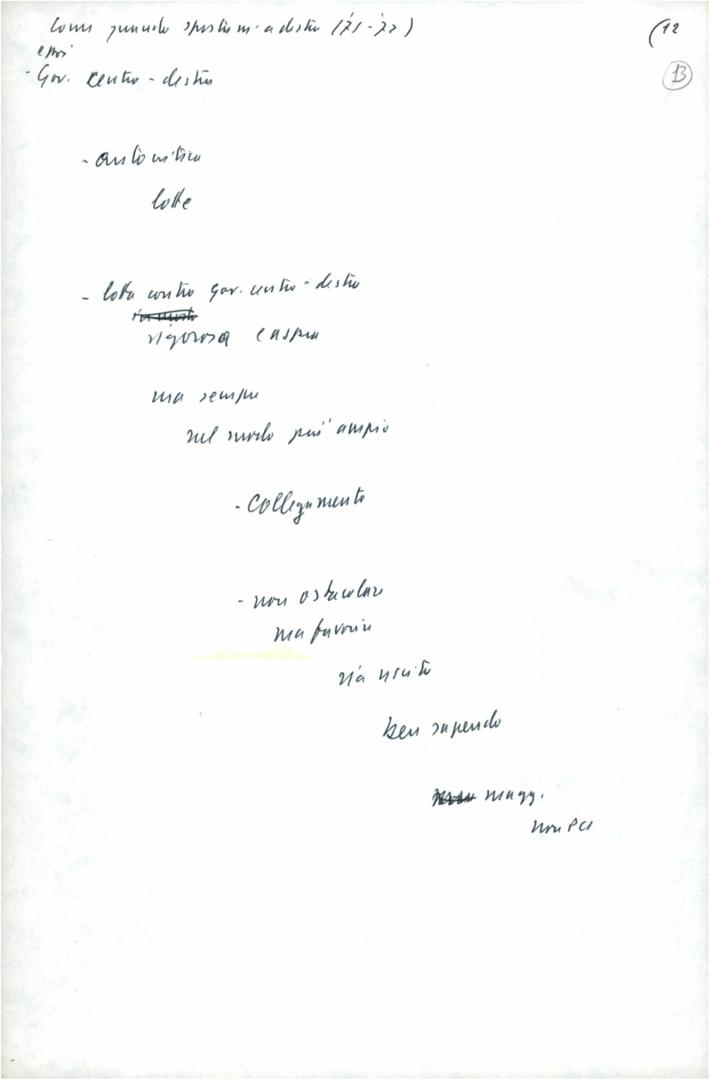 Come quando spostam. a destra ('71-'72)
(12
e poi
13
- Gov. centro-destra
- autocritica
lotte
- lotta contro gov. centro-destra
rigorosa e aspra
ma sempre
nel modo più ampio
- Collegamento
- non ostacolare
ma favorire
via uscita
ben sapendo
magg.
non PCI